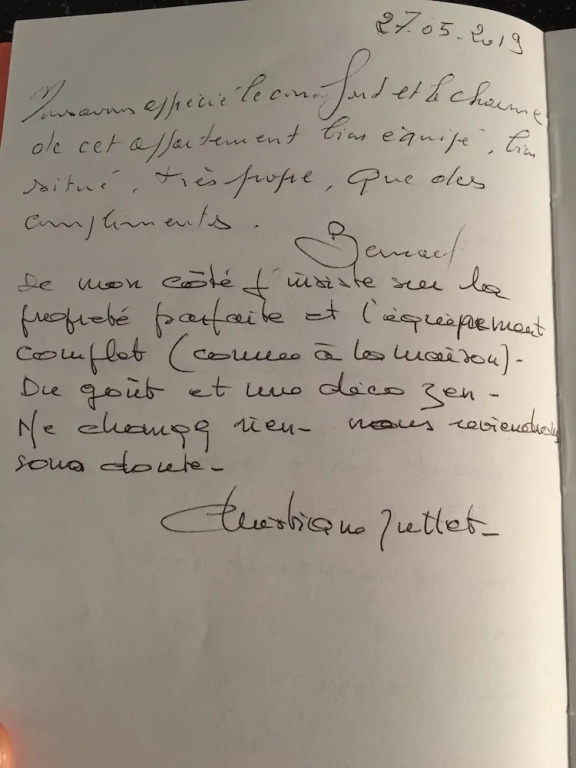 27.05.2019
Nous avons apprécié le confort et le charme
de cet appartement bien équipé, bien
situé, très propre, que des
compliments.
Bernard
De mon côté j'insiste sur la
propreté parfaite et l'équipement
complet (comme à la maison).
Du goût et une déco zen -
Ne changez rien - nous reviendrons
sans doute -
Christiane